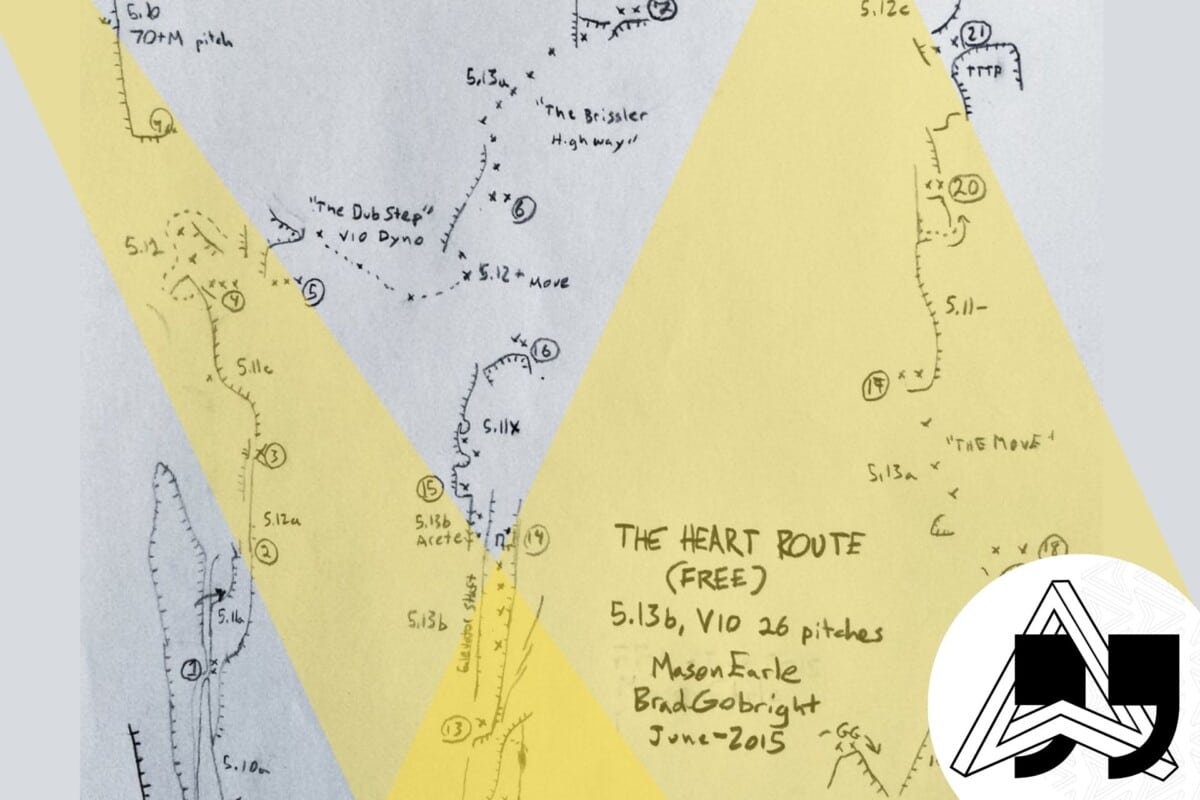 5.10
70+M pitch
9
7
5.13a
"The Brissler
Highway"
6
"The Dub Step"
V10 Dyno
5.12+ Move
5.12
4
5
5.11c
3
5.12a
2
5.11a
1
5.10a
16
5.11X
15
5.13b
Arete
14
5.13b
Elevator Shaft
13
5.12c
21
TTTP
20
5.11-
19
"THE MOVE"
5.13a
18
THE HEART ROUTE
(FREE)
5.13b, V10 26 pitches
Mason Earle
Brad Gobright
June-2015
GG